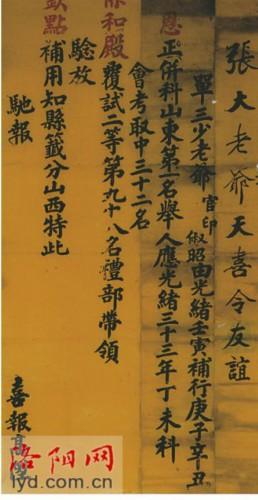 張大老爺天喜令友誼
單三少老爺官印俶昭由光緒壬寅補行庚子辛丑
恩正併科山東第一名舉人應光緒三十三年丁未科
會考取中三十二名
保和殿覆試二等第九十八名禮部帶領
驗放
欽點補用知縣籤分山西特此
馳報
喜報
洛阳网
lyd.com.cn